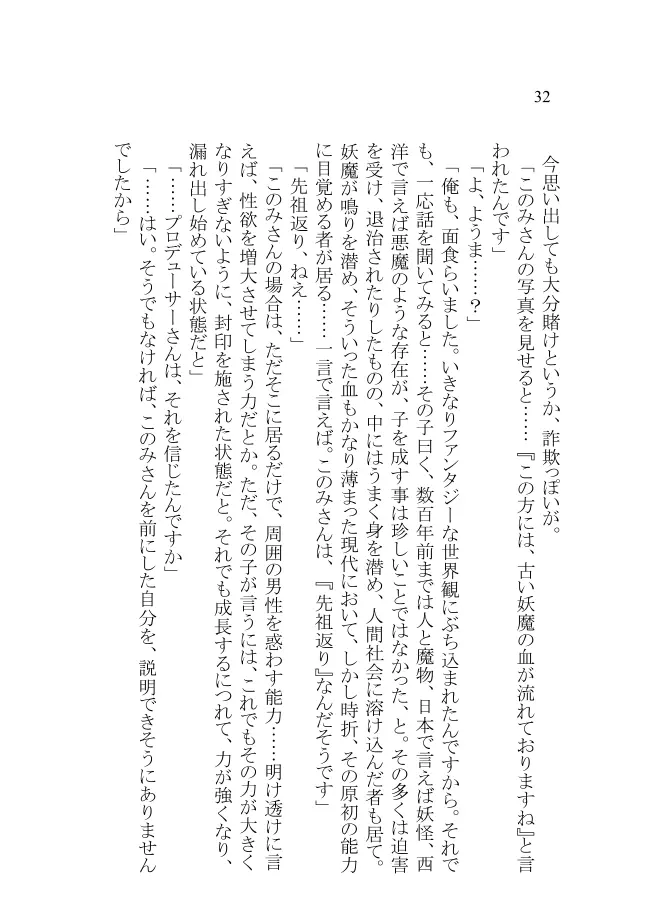 32
今思い出しても大分賭けというか、詐欺っぽいが。
「このみさんの写真を見せると……『この方には、古い妖魔の血が流れておりますね』と言
われたんです」
「よ、ようま……？」
「俺も、面食らいました。いきなりファンタジーな世界観にぶち込まれたんですから。それで
も、一応話を聞いてみると……その子曰く、数百年前までは人と魔物、日本で言えば妖怪、西
洋で言えば悪魔のような存在が、子を成す事は珍しいことではなかった、と。その多くは迫害
を受け、退治されたりしたものの、中にはうまく身を潜め、人間社会に溶け込んだ者も居て。
妖魔が鳴りを潜め、そういった血もかなり薄まった現代において、しかし時折、その原初の能力
に目覚める者が居る……一言で言えば。このみさんは、『先祖返り』なんだそうです」
「先祖返り、ねえ……」
「このみさんの場合は、ただそこに居るだけで、周囲の男性を惑わす能力……明け透けに言
えば、性欲を増大させてしまう力だとか。ただ、その子が言うには、これでもその力が大きく
なりすぎないように、封印を施された状態だと。それでも成長するにつれて、力が強くなり、
漏れ出し始めている状態だと」
「……プロデューサーさんは、それを信じたんですか」
「……はい。そうでもなければ、このみさんを前にした自分を、説明できそうにありません
でしたから」